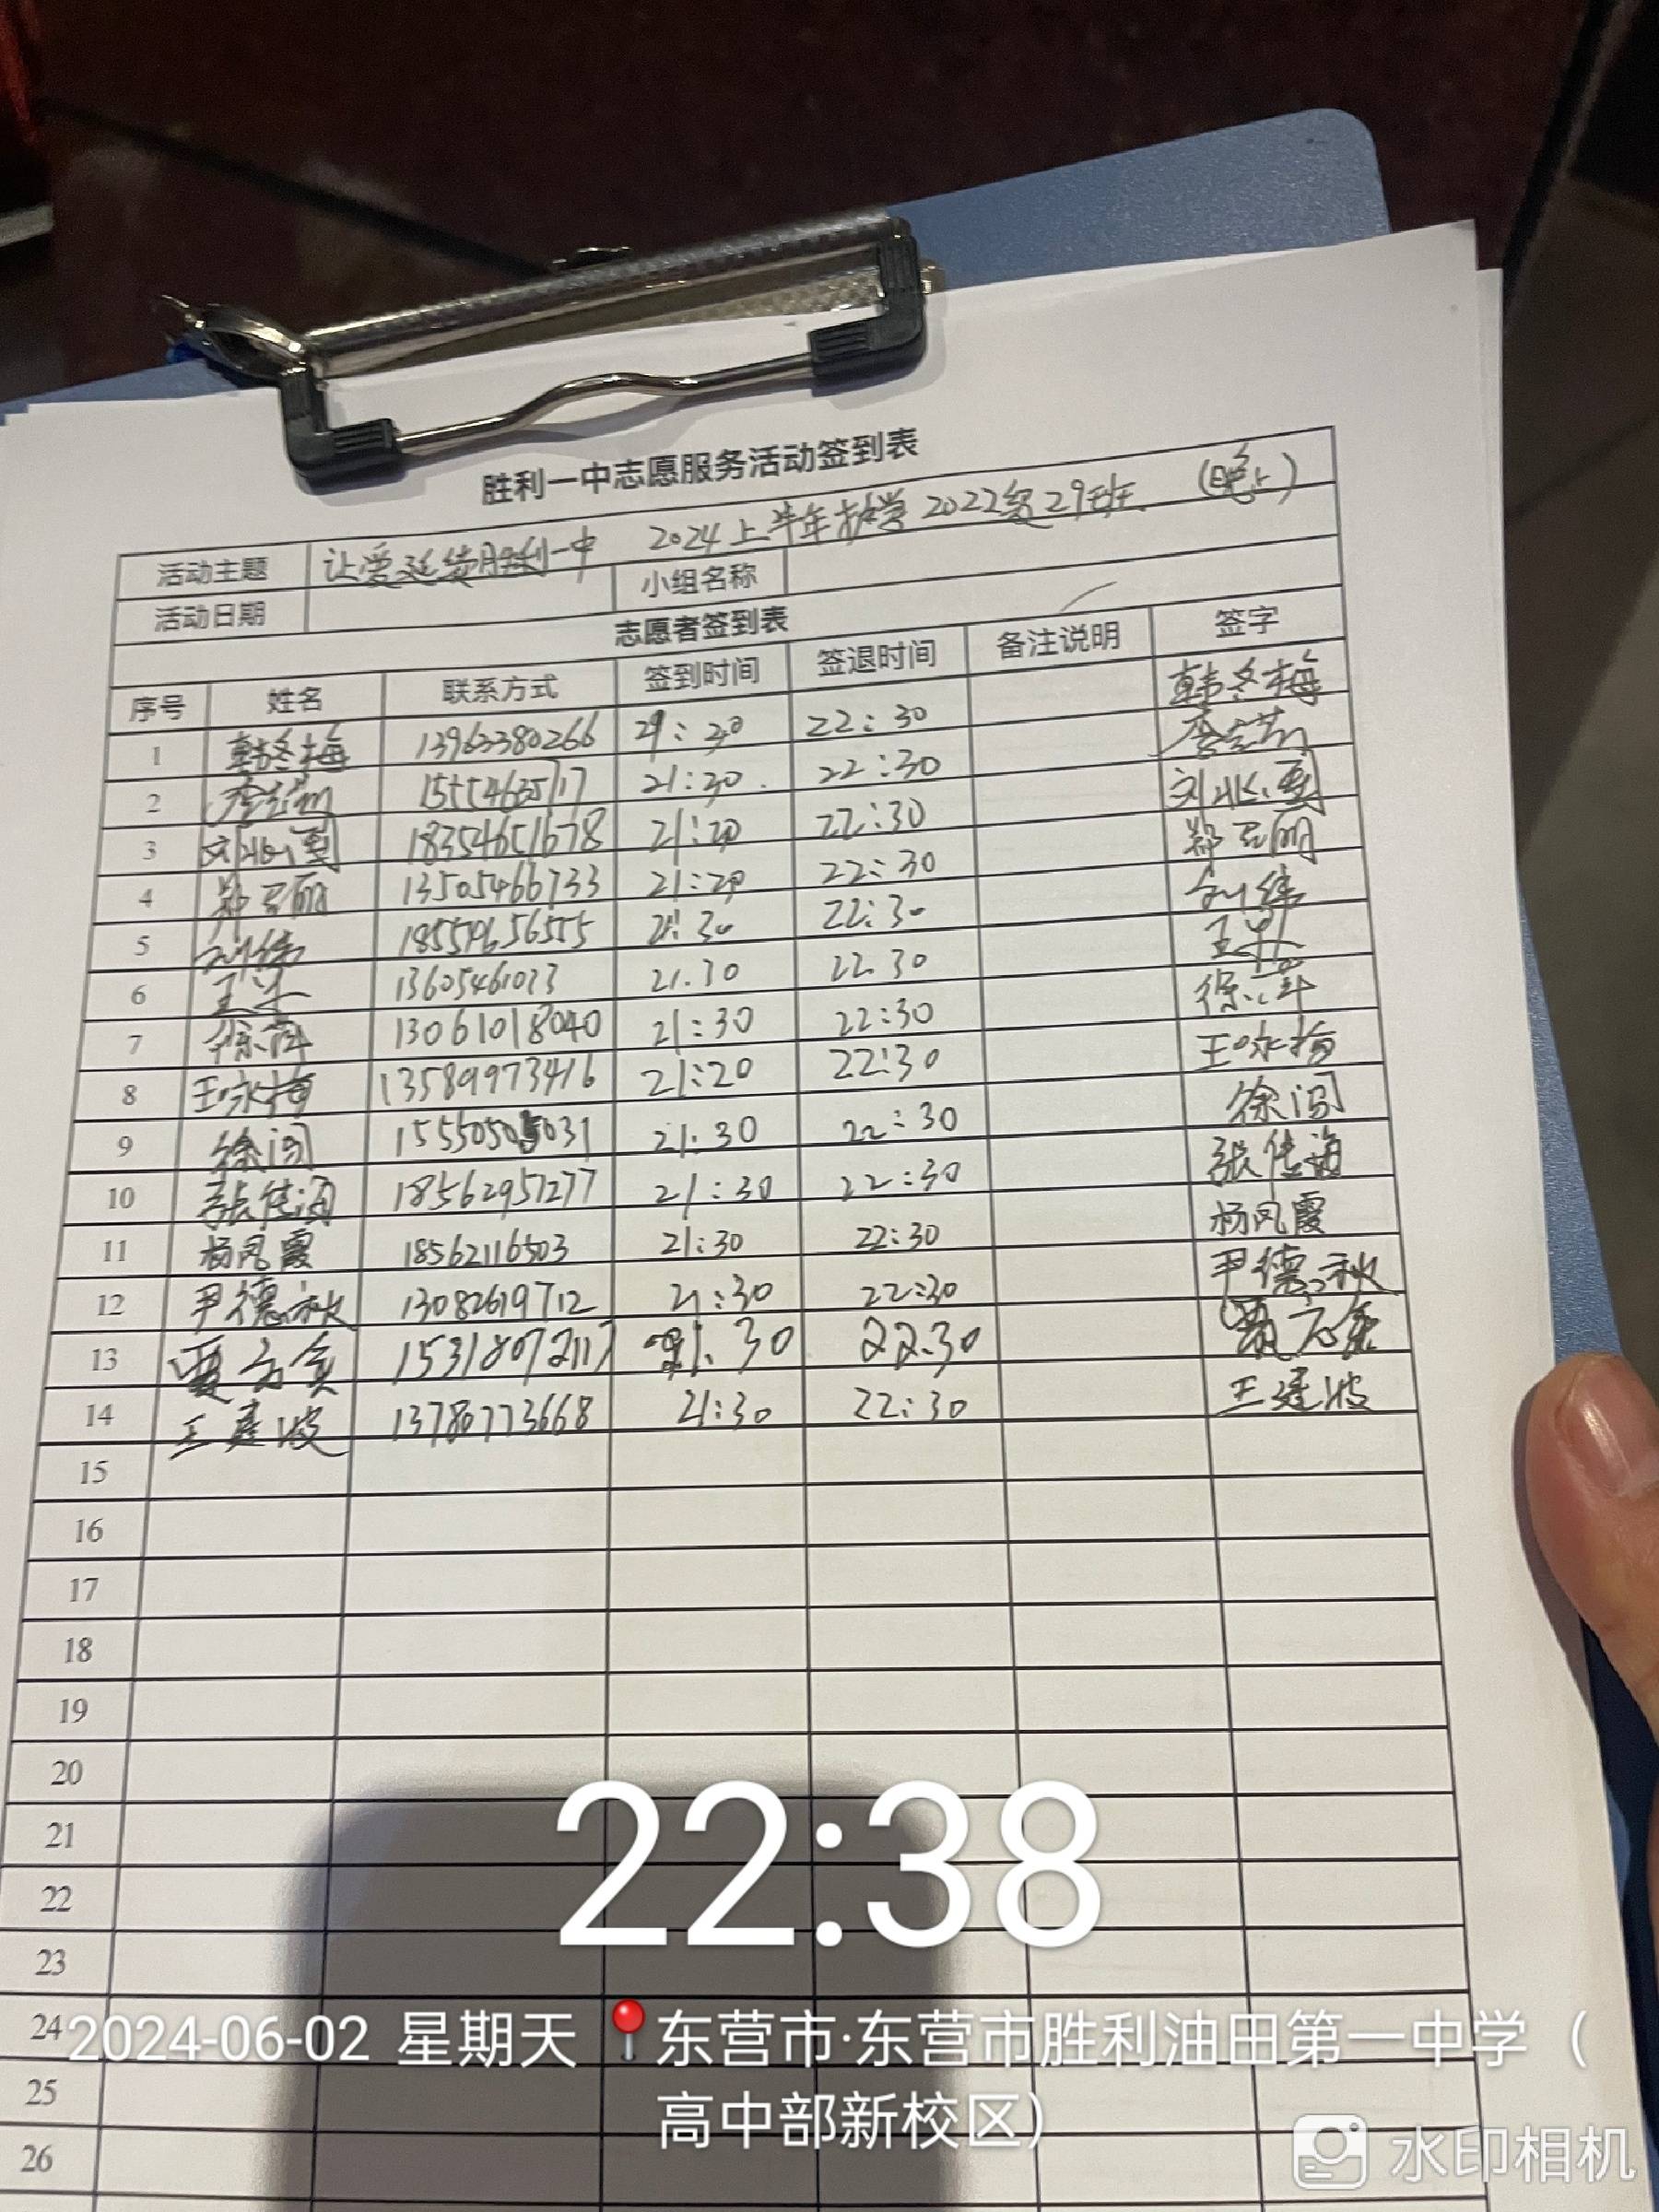 胜利一中志愿服务活动签到表
活动主题 让爱延续胜利一中 2024上半年护学2022级29班 (晚上)
活动日期 小组名称
志愿者签到表
序号 姓名 联系方式 签到时间 签退时间 备注说明 签字
1 韩冬梅 13963380266 21:30 22:30 韩冬梅
2 21:30 22:30
3 18354651678 22:30
4 郑 13505466733 22:30 郑
5 刘伟 21:30 22:30 刘伟
6 王 21.30 22 30 王
7 徐萍 13061018040 21:30 22:30 徐萍
8 王咏梅 13589973416 21:20 22:30 王咏梅
9 徐闯 21:30 22:30 徐闯
10 张传海 18562951277 21:30 22:30 张传海
11 杨凤霞 18562116503 21:30 22:30 杨凤霞
12 尹德秋 13082619712 21:30 22:30 尹德秋
13 贾 15318072117 21:30 22:30 贾
14 王建波 13780773668 21:30 22:30 王建波
15
16
17
18
19
20
21
22
23
24
25
26
22:38
2024-06-02 星期天 东营市·东营市胜利油田第一中学（
高中部新校区）
水印相机